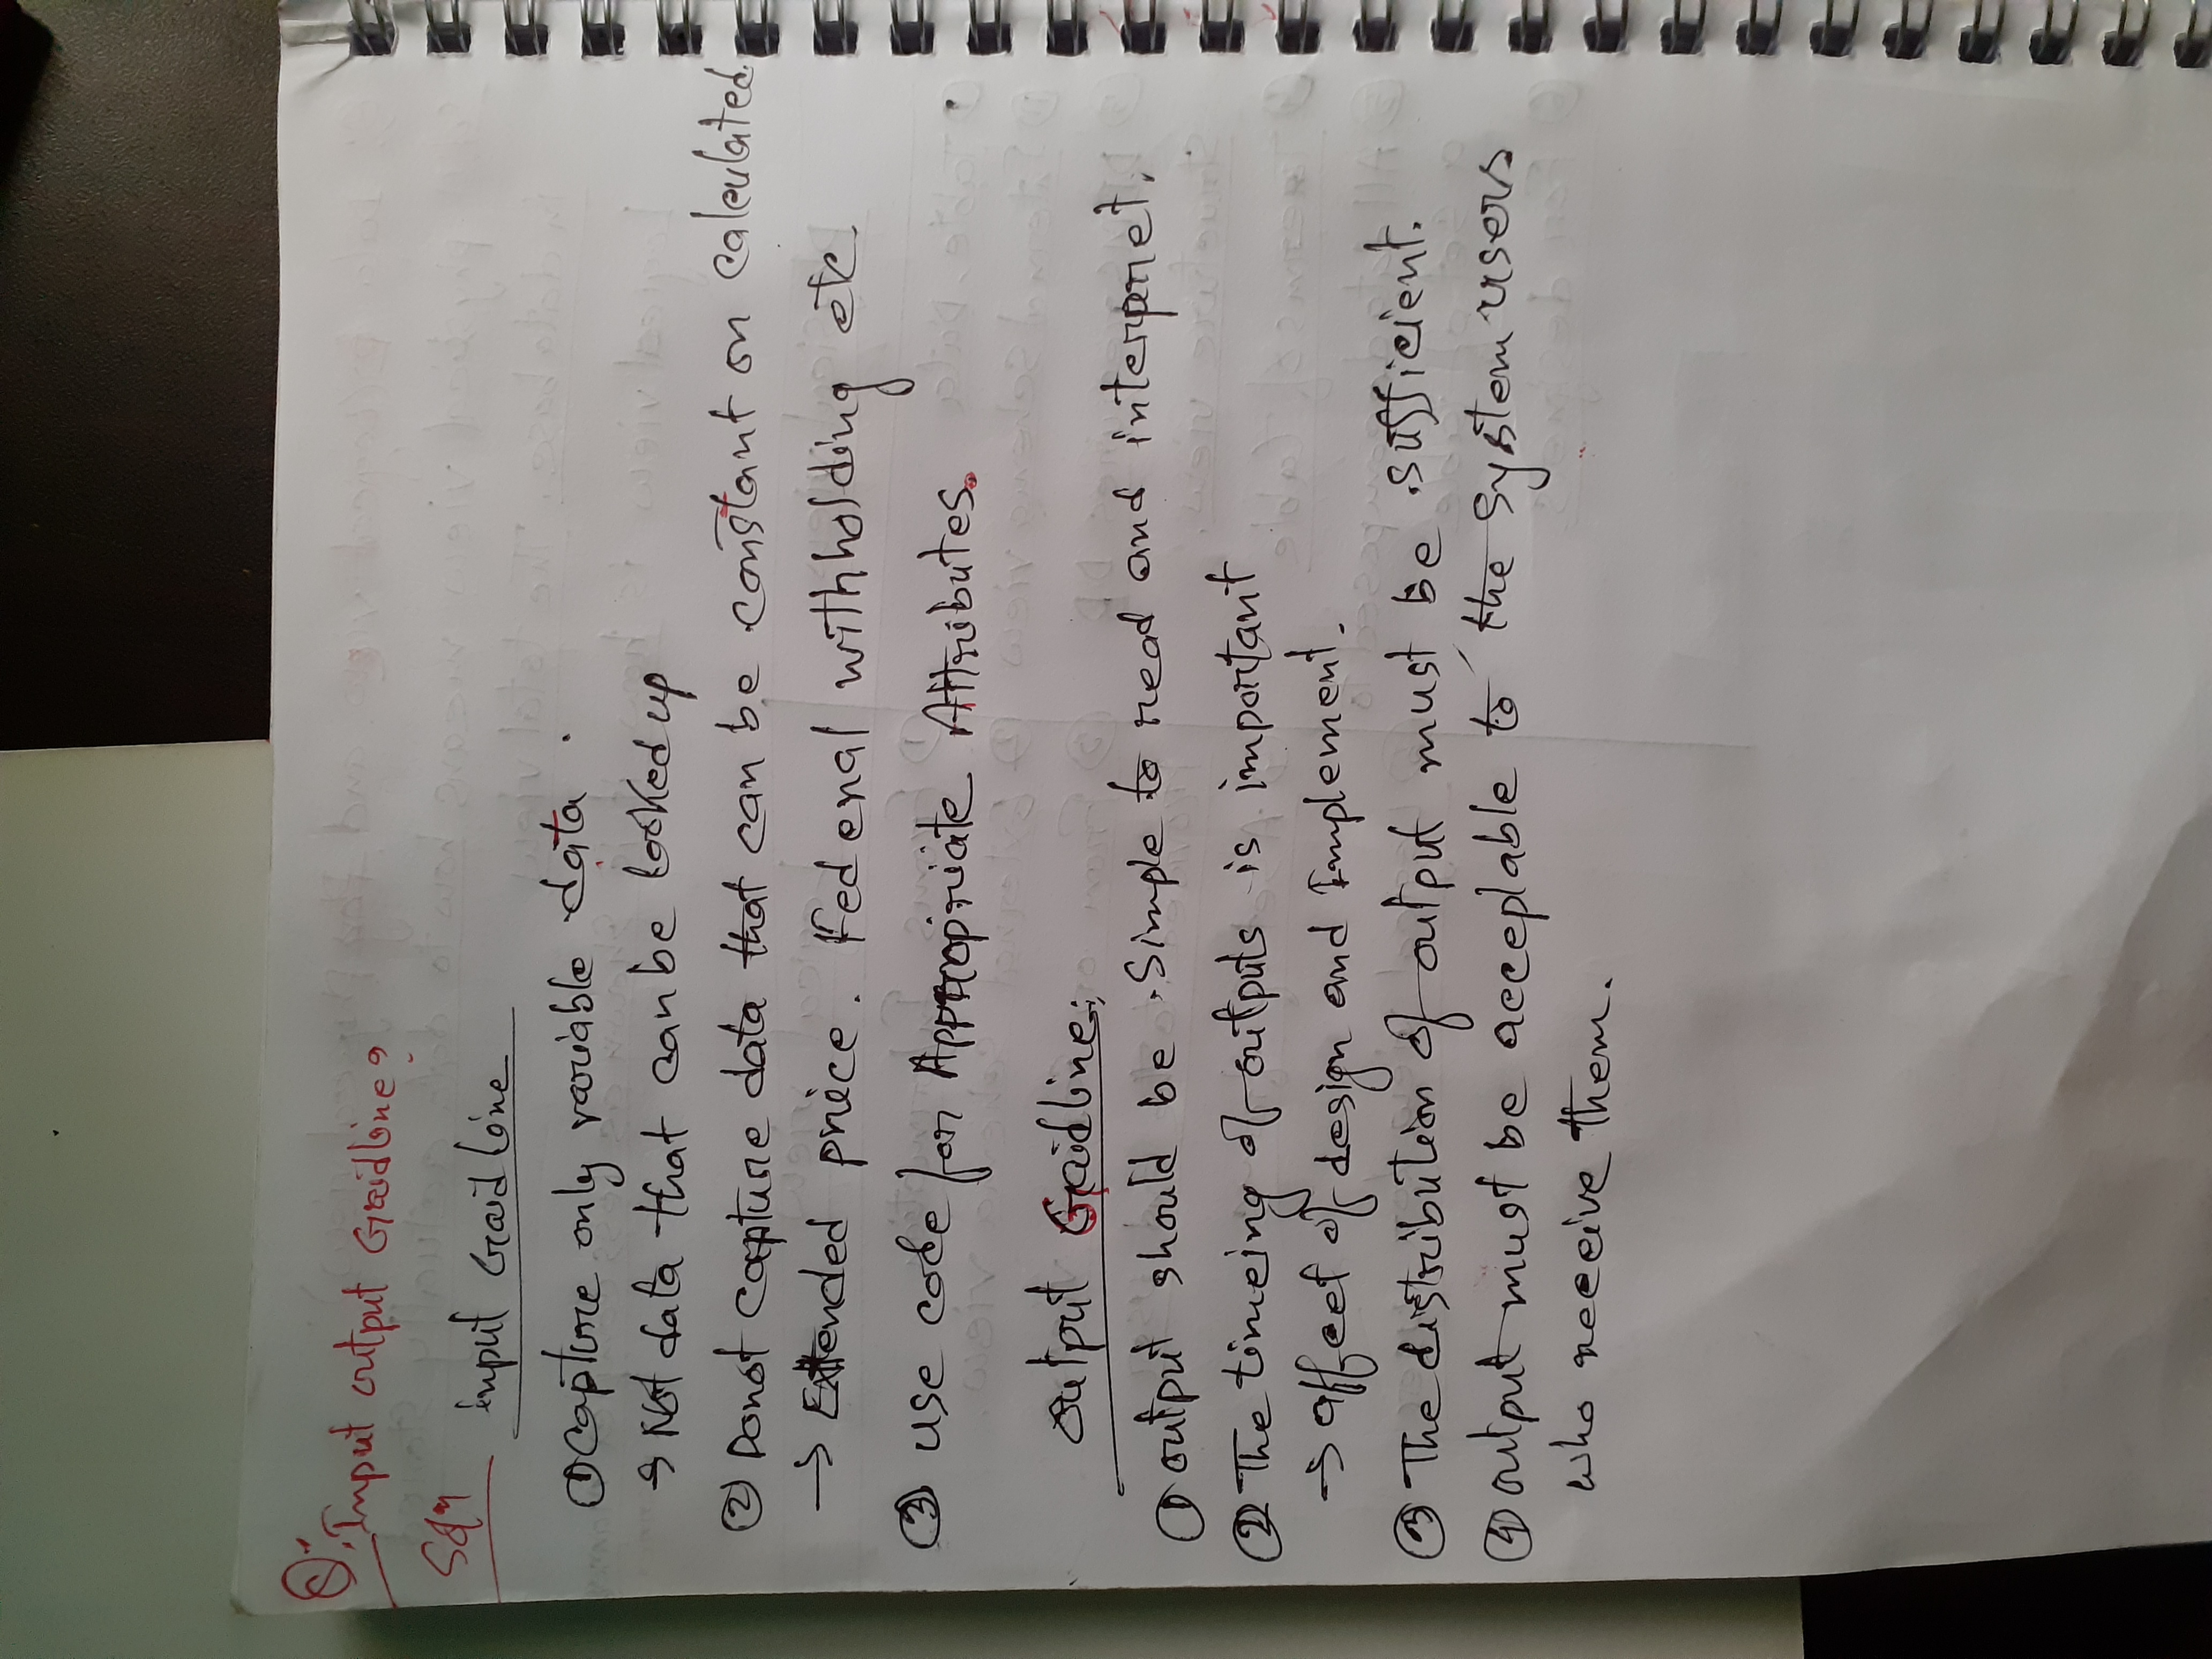 Q: Input output Gaidline?
Solⁿ
input Gaidline
① Capture only variable data.
→ Not data that can be looked up
② Donot capture data that can be constant or calculated.
→ Extended price. Federal withholding etc.
③ use code for Appropriate Attributes.
output Gaidline;
① output should be simple to read and interpret.
② The timeing of outputs is important
→ affect of design and Implement.
③ The distribution of output must be sufficient.
④ output must be acceplable to the system users
who receive them.